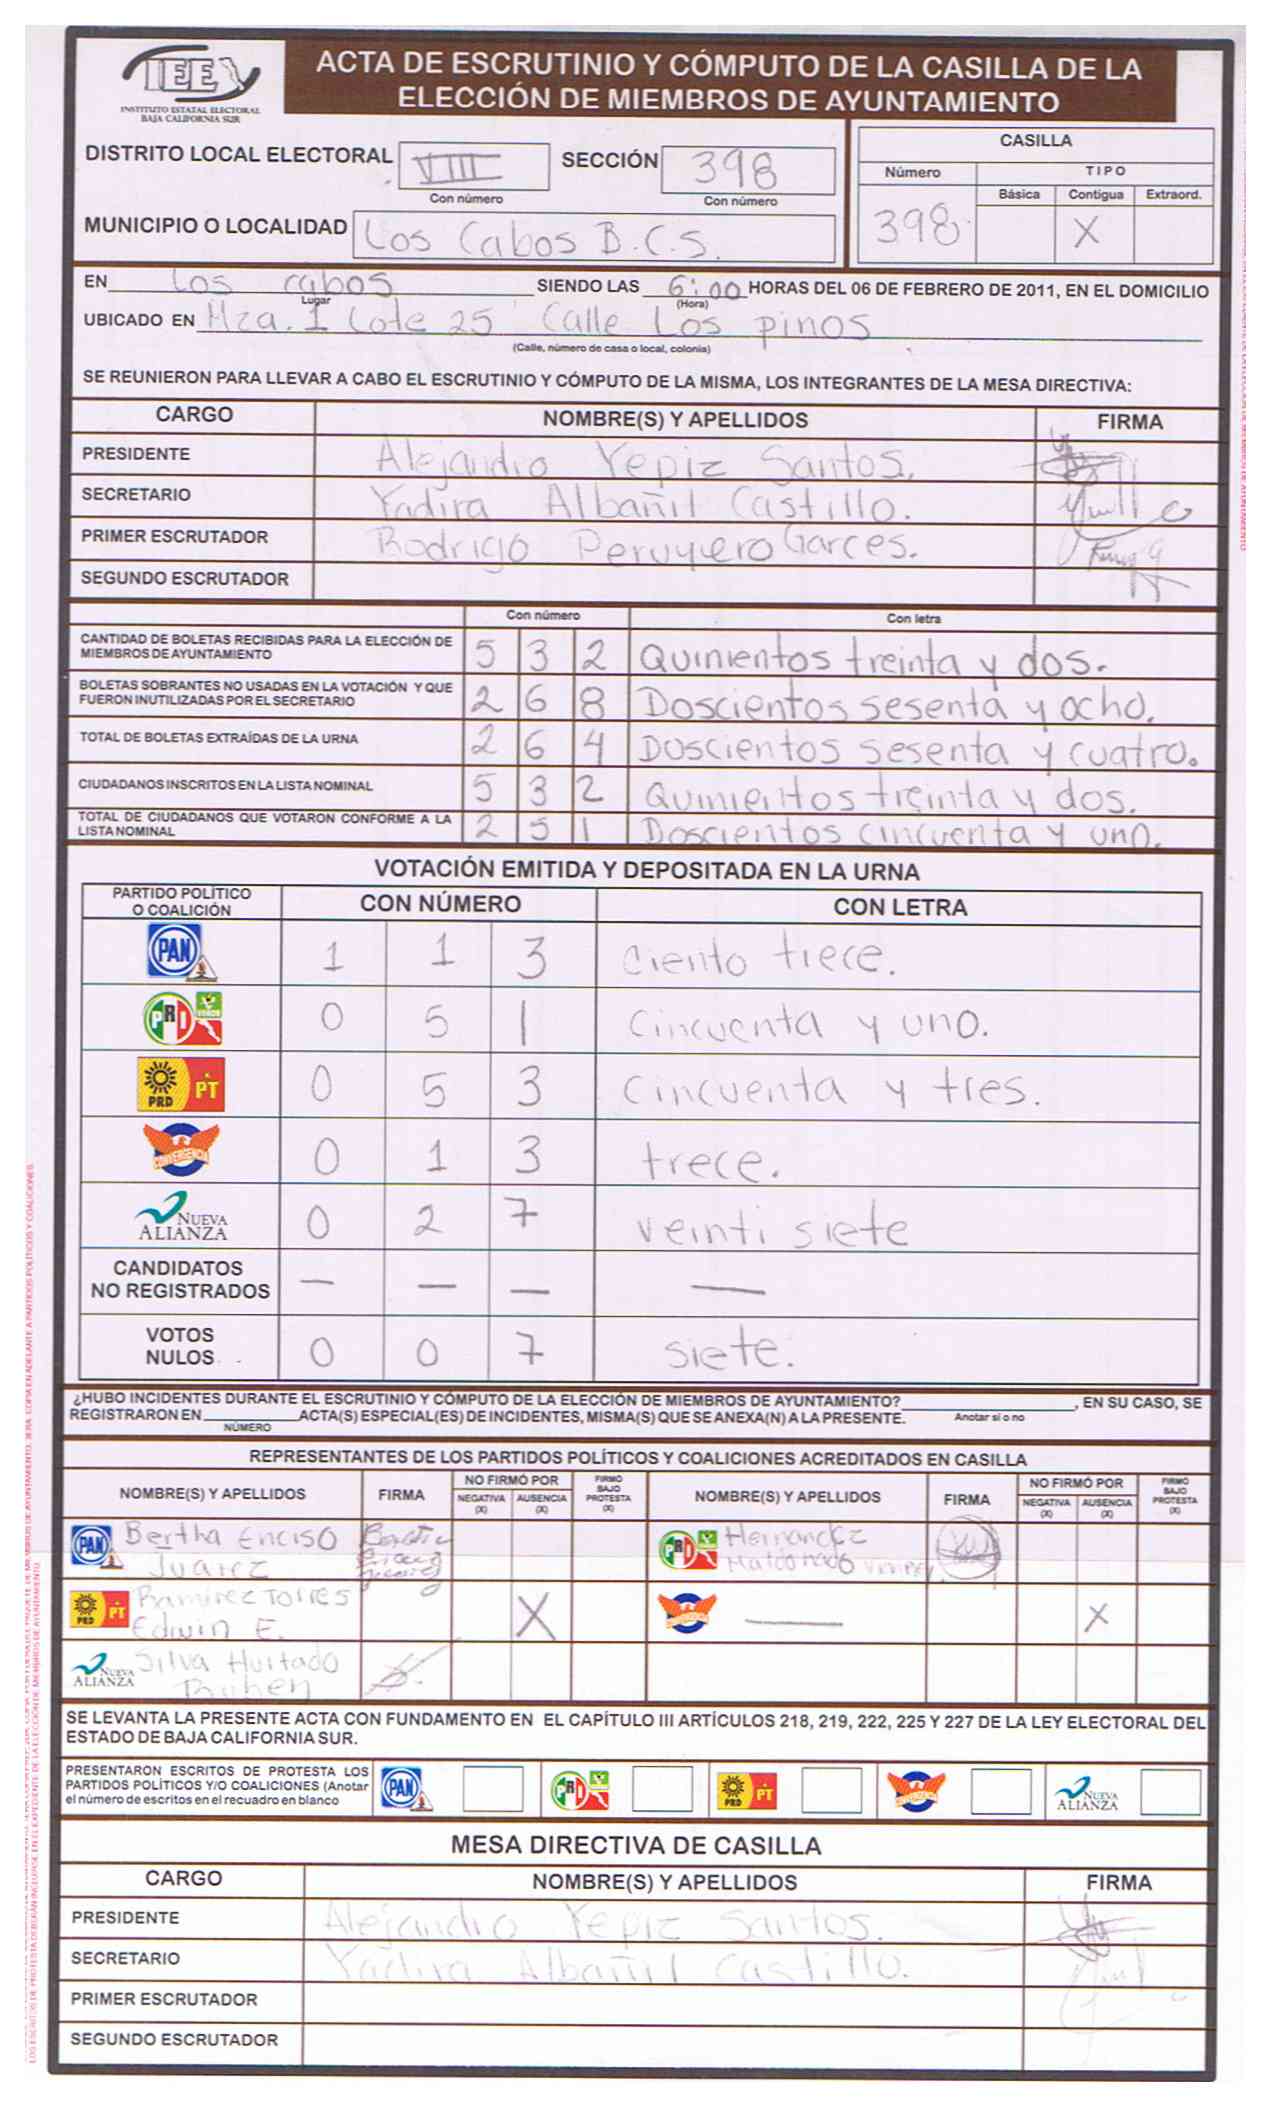 IEE
INSTITUTO ESTATAL ELECTORAL
BAJA CALIFORNIA SUR
ACTA DE ESCRUTINIO Y CÓMPUTO DE LA CASILLA DE LA
ELECCIÓN DE MIEMBROS DE AYUNTAMIENTO
DISTRITO LOCAL ELECTORAL VIII SECCIÓN 398
Con número Con número
MUNICIPIO O LOCALIDAD Los Cabos B.C.S.
CASILLA
Número TIPO
Básica Contigua Extraord.
398 X
EN Los cabos SIENDO LAS 6:00 HORAS DEL 06 DE FEBRERO DE 2011, EN EL DOMICILIO
Lugar (Hora)
UBICADO EN Mza. I Lote 25 Calle Los pinos
(Calle, número de casa o local, colonia)
SE REUNIERON PARA LLEVAR A CABO EL ESCRUTINIO Y CÓMPUTO DE LA MISMA, LOS INTEGRANTES DE LA MESA DIRECTIVA:
CARGO NOMBRE(S) Y APELLIDOS FIRMA
PRESIDENTE Alejandro Yepiz Santos.
SECRETARIO Yadira Albañil Castillo.
PRIMER ESCRUTADOR Rodrigo Peruyero Garces.
SEGUNDO ESCRUTADOR
Con número Con letra
CANTIDAD DE BOLETAS RECIBIDAS PARA LA ELECCIÓN DE
MIEMBROS DE AYUNTAMIENTO 5 3 2 Quinientos treinta y dos.
BOLETAS SOBRANTES NO USADAS EN LA VOTACIÓN Y QUE
FUERON INUTILIZADAS POR EL SECRETARIO 2 6 8 Doscientos sesenta y ocho.
TOTAL DE BOLETAS EXTRAÍDAS DE LA URNA 2 6 4 Doscientos sesenta y cuatro.
CIUDADANOS INSCRITOS EN LA LISTA NOMINAL 5 3 2 Quinientos treinta y dos.
TOTAL DE CIUDADANOS QUE VOTARON CONFORME A LA
LISTA NOMINAL 2 5 1 Doscientos cincuenta y uno.
VOTACIÓN EMITIDA Y DEPOSITADA EN LA URNA
PARTIDO POLÍTICO
O COALICIÓN CON NÚMERO CON LETRA
PAN 1 1 3 ciento trece.
PRI VERDE 0 5 1 cincuenta y uno.
PRD PT 0 5 3 cincuenta y tres.
CONVERGENCIA 0 1 3 trece.
NUEVA ALIANZA 0 2 7 veinti siete
CANDIDATOS
NO REGISTRADOS — — — —
VOTOS
NULOS 0 0 7 siete.
¿HUBO INCIDENTES DURANTE EL ESCRUTINIO Y CÓMPUTO DE LA ELECCIÓN DE MIEMBROS DE AYUNTAMIENTO? , EN SU CASO, SE
REGISTRARON EN ACTA(S) ESPECIAL(ES) DE INCIDENTES, MISMA(S) QUE SE ANEXA(N) A LA PRESENTE. Anotar sí o no
NÚMERO
REPRESENTANTES DE LOS PARTIDOS POLÍTICOS Y COALICIONES ACREDITADOS EN CASILLA
NOMBRE(S) Y APELLIDOS FIRMA NO FIRMÓ POR NEGATIVA (X) AUSENCIA (X) FIRMÓ BAJO PROTESTA (X) NOMBRE(S) Y APELLIDOS FIRMA NO FIRMÓ POR NEGATIVA (X) AUSENCIA (X) FIRMÓ BAJO PROTESTA (X)
PAN Bertha Enciso PRI Hernandez
Juarez Maldonado
PRD PT Ramirez Torres X CONVERGENCIA — X
Edwin E.
NUEVA ALIANZA Silva Hurtado
Ruben
SE LEVANTA LA PRESENTE ACTA CON FUNDAMENTO EN EL CAPÍTULO III ARTÍCULOS 218, 219, 222, 225 Y 227 DE LA LEY ELECTORAL DEL
ESTADO DE BAJA CALIFORNIA SUR.
PRESENTARON ESCRITOS DE PROTESTA LOS
PARTIDOS POLÍTICOS Y/O COALICIONES (Anotar
el número de escritos en el recuadro en blanco
PAN PRI PRD PT CONVERGENCIA NUEVA ALIANZA
MESA DIRECTIVA DE CASILLA
CARGO NOMBRE(S) Y APELLIDOS FIRMA
PRESIDENTE Alejandro Yepiz Santos.
SECRETARIO Yadira Albañil Castillo.
PRIMER ESCRUTADOR
SEGUNDO ESCRUTADOR